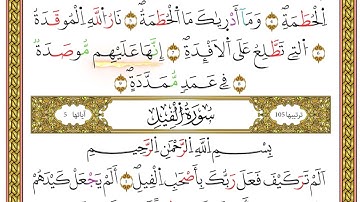 الْحُطَمَةِ ۝ وَمَا أَدْرِيكَ مَا الْحُطَمَةُ ۝ نَارُ اللَّهِ الْمُوقَدَةُ
۝ الَّتِي تَطَّلِعُ عَلَى الْأَفْـِٔدَةِ ۝ إِنَّهَا عَلَيْهِم مُّوصَدَةٌ
۝ فِي عَمَدٍ مُّمَدَّدَةٍ ۝
ترتيبها 105 سُورَةُ الْفِيلِ آياتها 5
بِسْمِ اللَّهِ الرَّحْمَٰنِ الرَّحِيمِ
أَلَمْ تَرَ كَيْفَ فَعَلَ رَبُّكَ بِأَصْحَٰبِ الْفِيلِ ۝ أَلَمْ يَجْعَلْ كَيْدَهُمْ